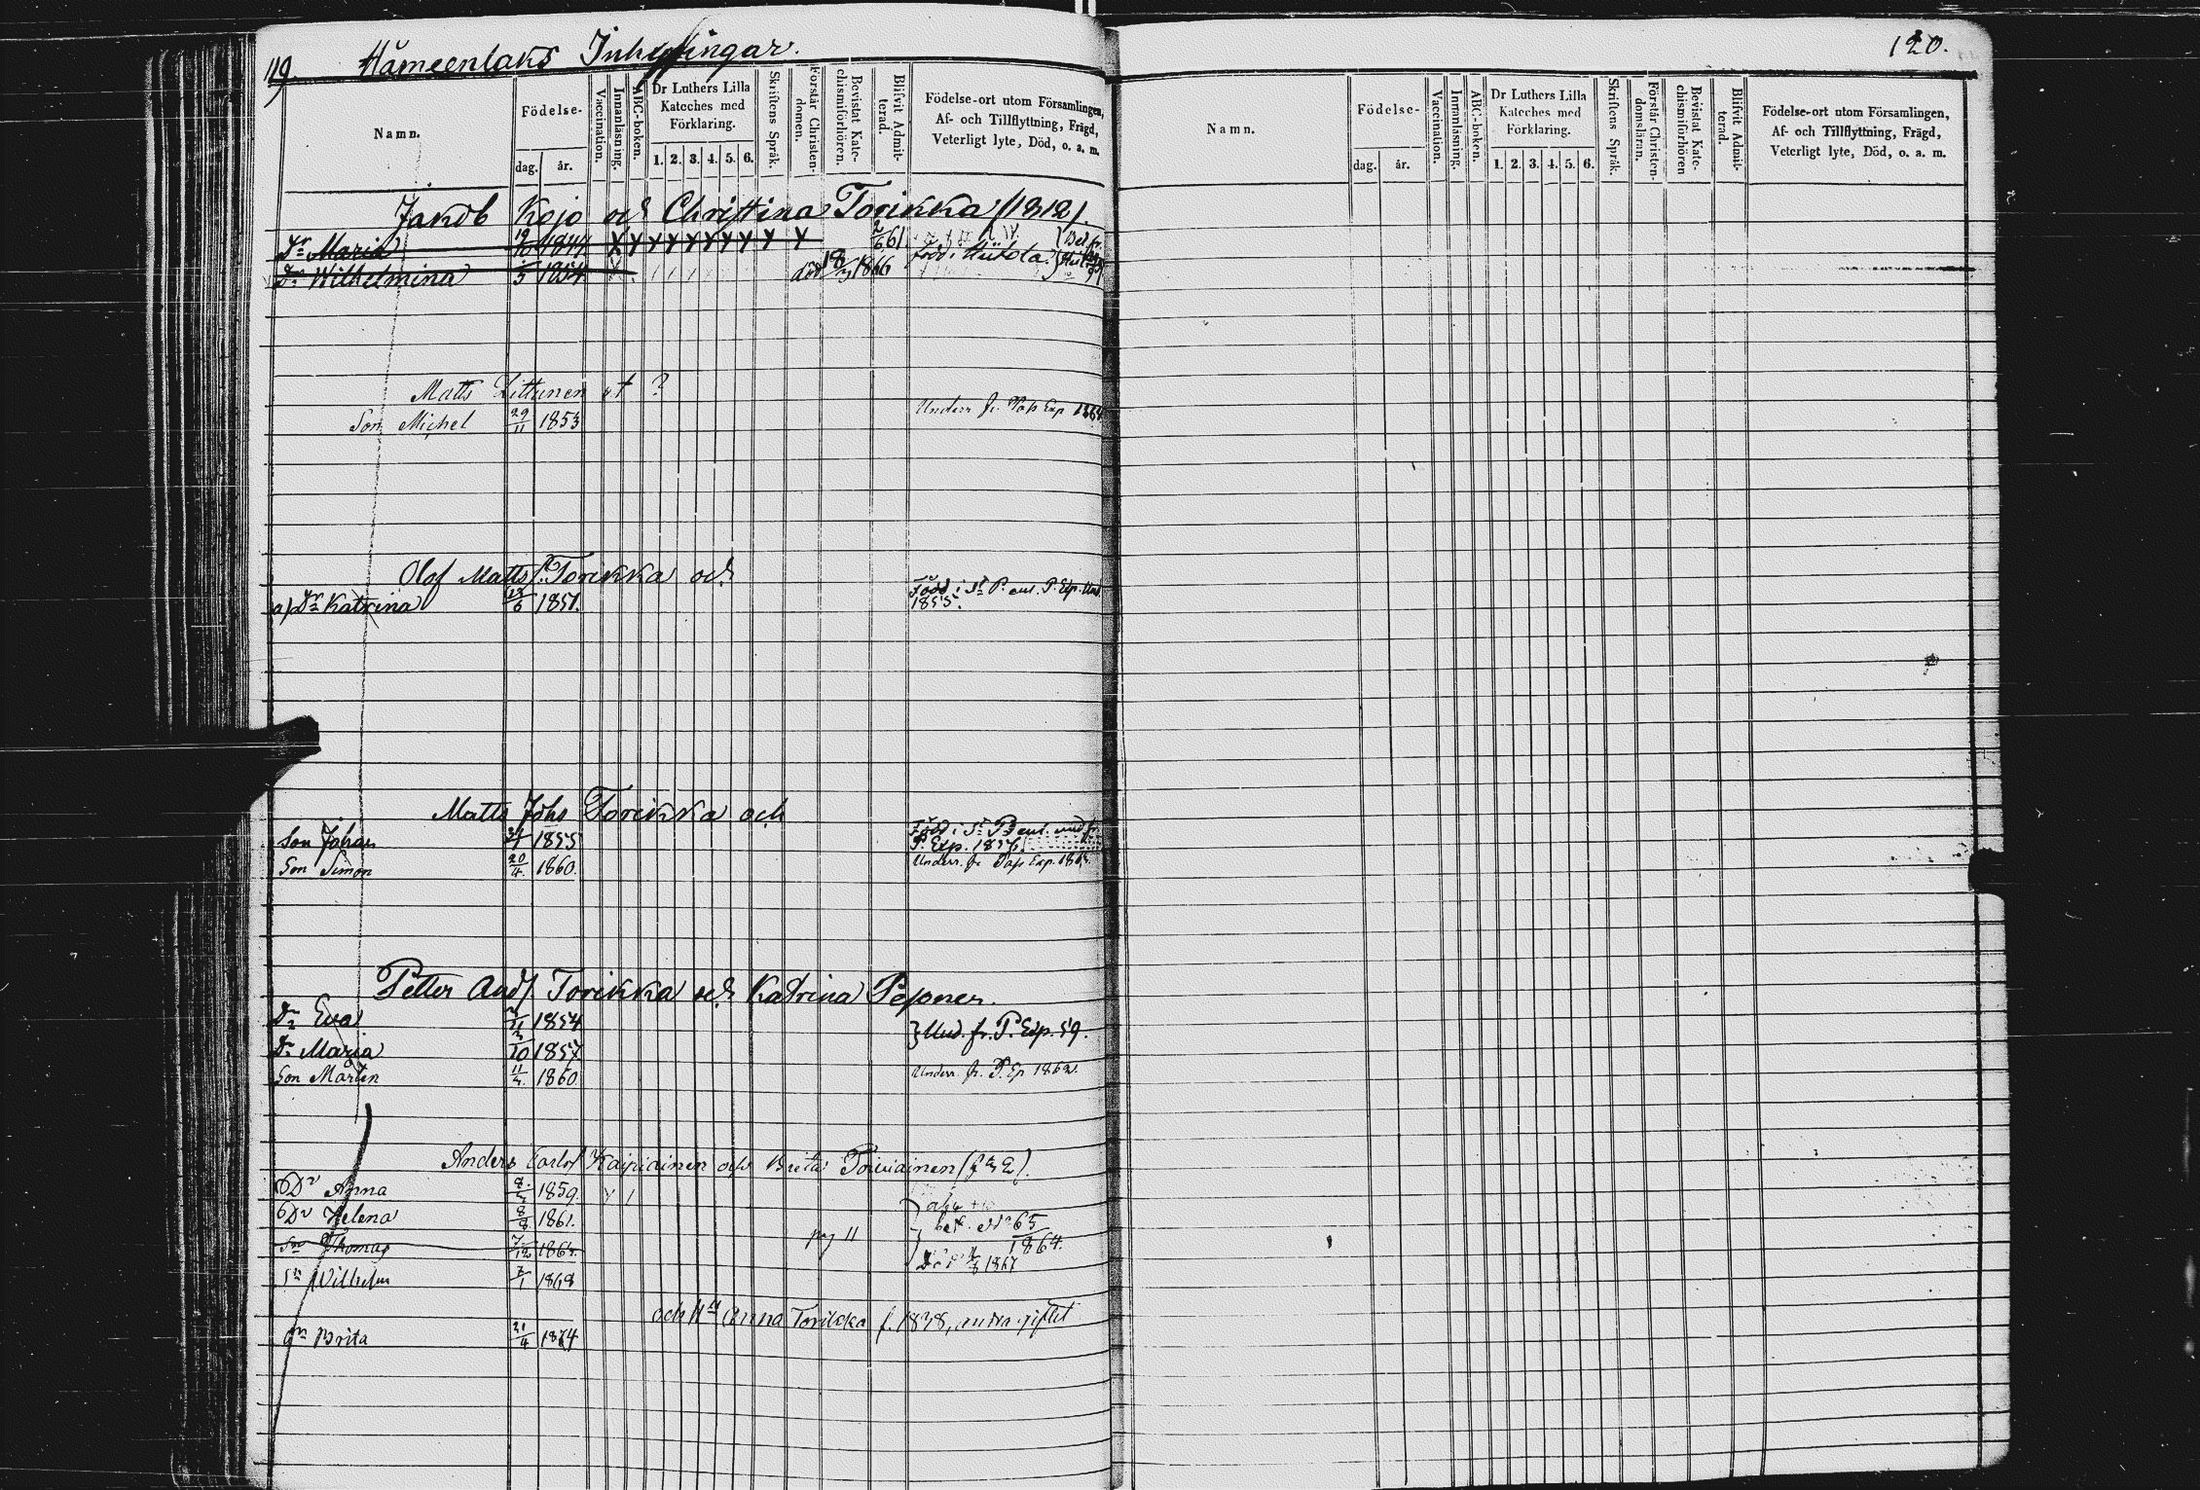 119.
Hämeenlaks Inhysingar.
Namn.
Födelse-
dag.
år.
Vaccination.
Innanläsning.
ABC-boken.
Dr Luthers Lilla
Kateches med
Förklaring.
1. 2. 3. 4. 5. 6.
Skriftens Språk.
Förstår Christen-
domen.
Bevistat Kate-
chismiförhören.
Blifvit Admit-
terad.
Födelse-ort utom Församlingen,
Af- och Tillflyttning, Frägd,
Veterligt lyte, Död, o. a. m.
Jakob Kojo och Christina Torikka (1812).
Dr Maria 1844 61
född i Hiitola.
Dr Wilhelmina 1854 död 1866
Matts Littunen et ?
Son Michel 29/11 1853 Underr fr. Pass Exp
Olof Matts Torikka och
a) Dr Katrina 1851. Född i St P. enl. P. Exp. Und.
1855.
Matts Johs Torikka och
Son Johan 1855 Född i St P. enl. und fr
P. Exp.
Son Simon 20/4 1860. Underr. fr Pass Exp.
Petter And. Torikka och Katrina Pesonen.
Dr Eva 1854 Und. fr. P. Exp. 59.
Dr Maria 2/10 1857
Son Martin 11/4 1860 Underr. fr. P. Ep 1862
Anders Carls Kaipiainen och Brita Toiviainen
Dr Anna 1859.
Dr Helena 8/8 1861. 65
pag 11
1864.
Sn Thomas 7/12 1864. 1867
Sn Wilhelm 7/1 1868
och H Anna Torikka f. 1838, andra giftet
Brita 21/4 1874
120.
Namn.
Födelse-
dag.
år.
Vaccination.
Innanläsning.
ABC-boken.
Dr Luthers Lilla
Kateches med
Förklaring.
1. 2. 3. 4. 5. 6.
Skriftens Språk.
Förstår Christen-
domsläran.
Bevistat Kate-
chismiförhören
Blifvit Admit-
terad.
Födelse-ort utom Församlingen,
Af- och Tillflyttning, Frägd,
Veterligt lyte, Död, o. a. m.